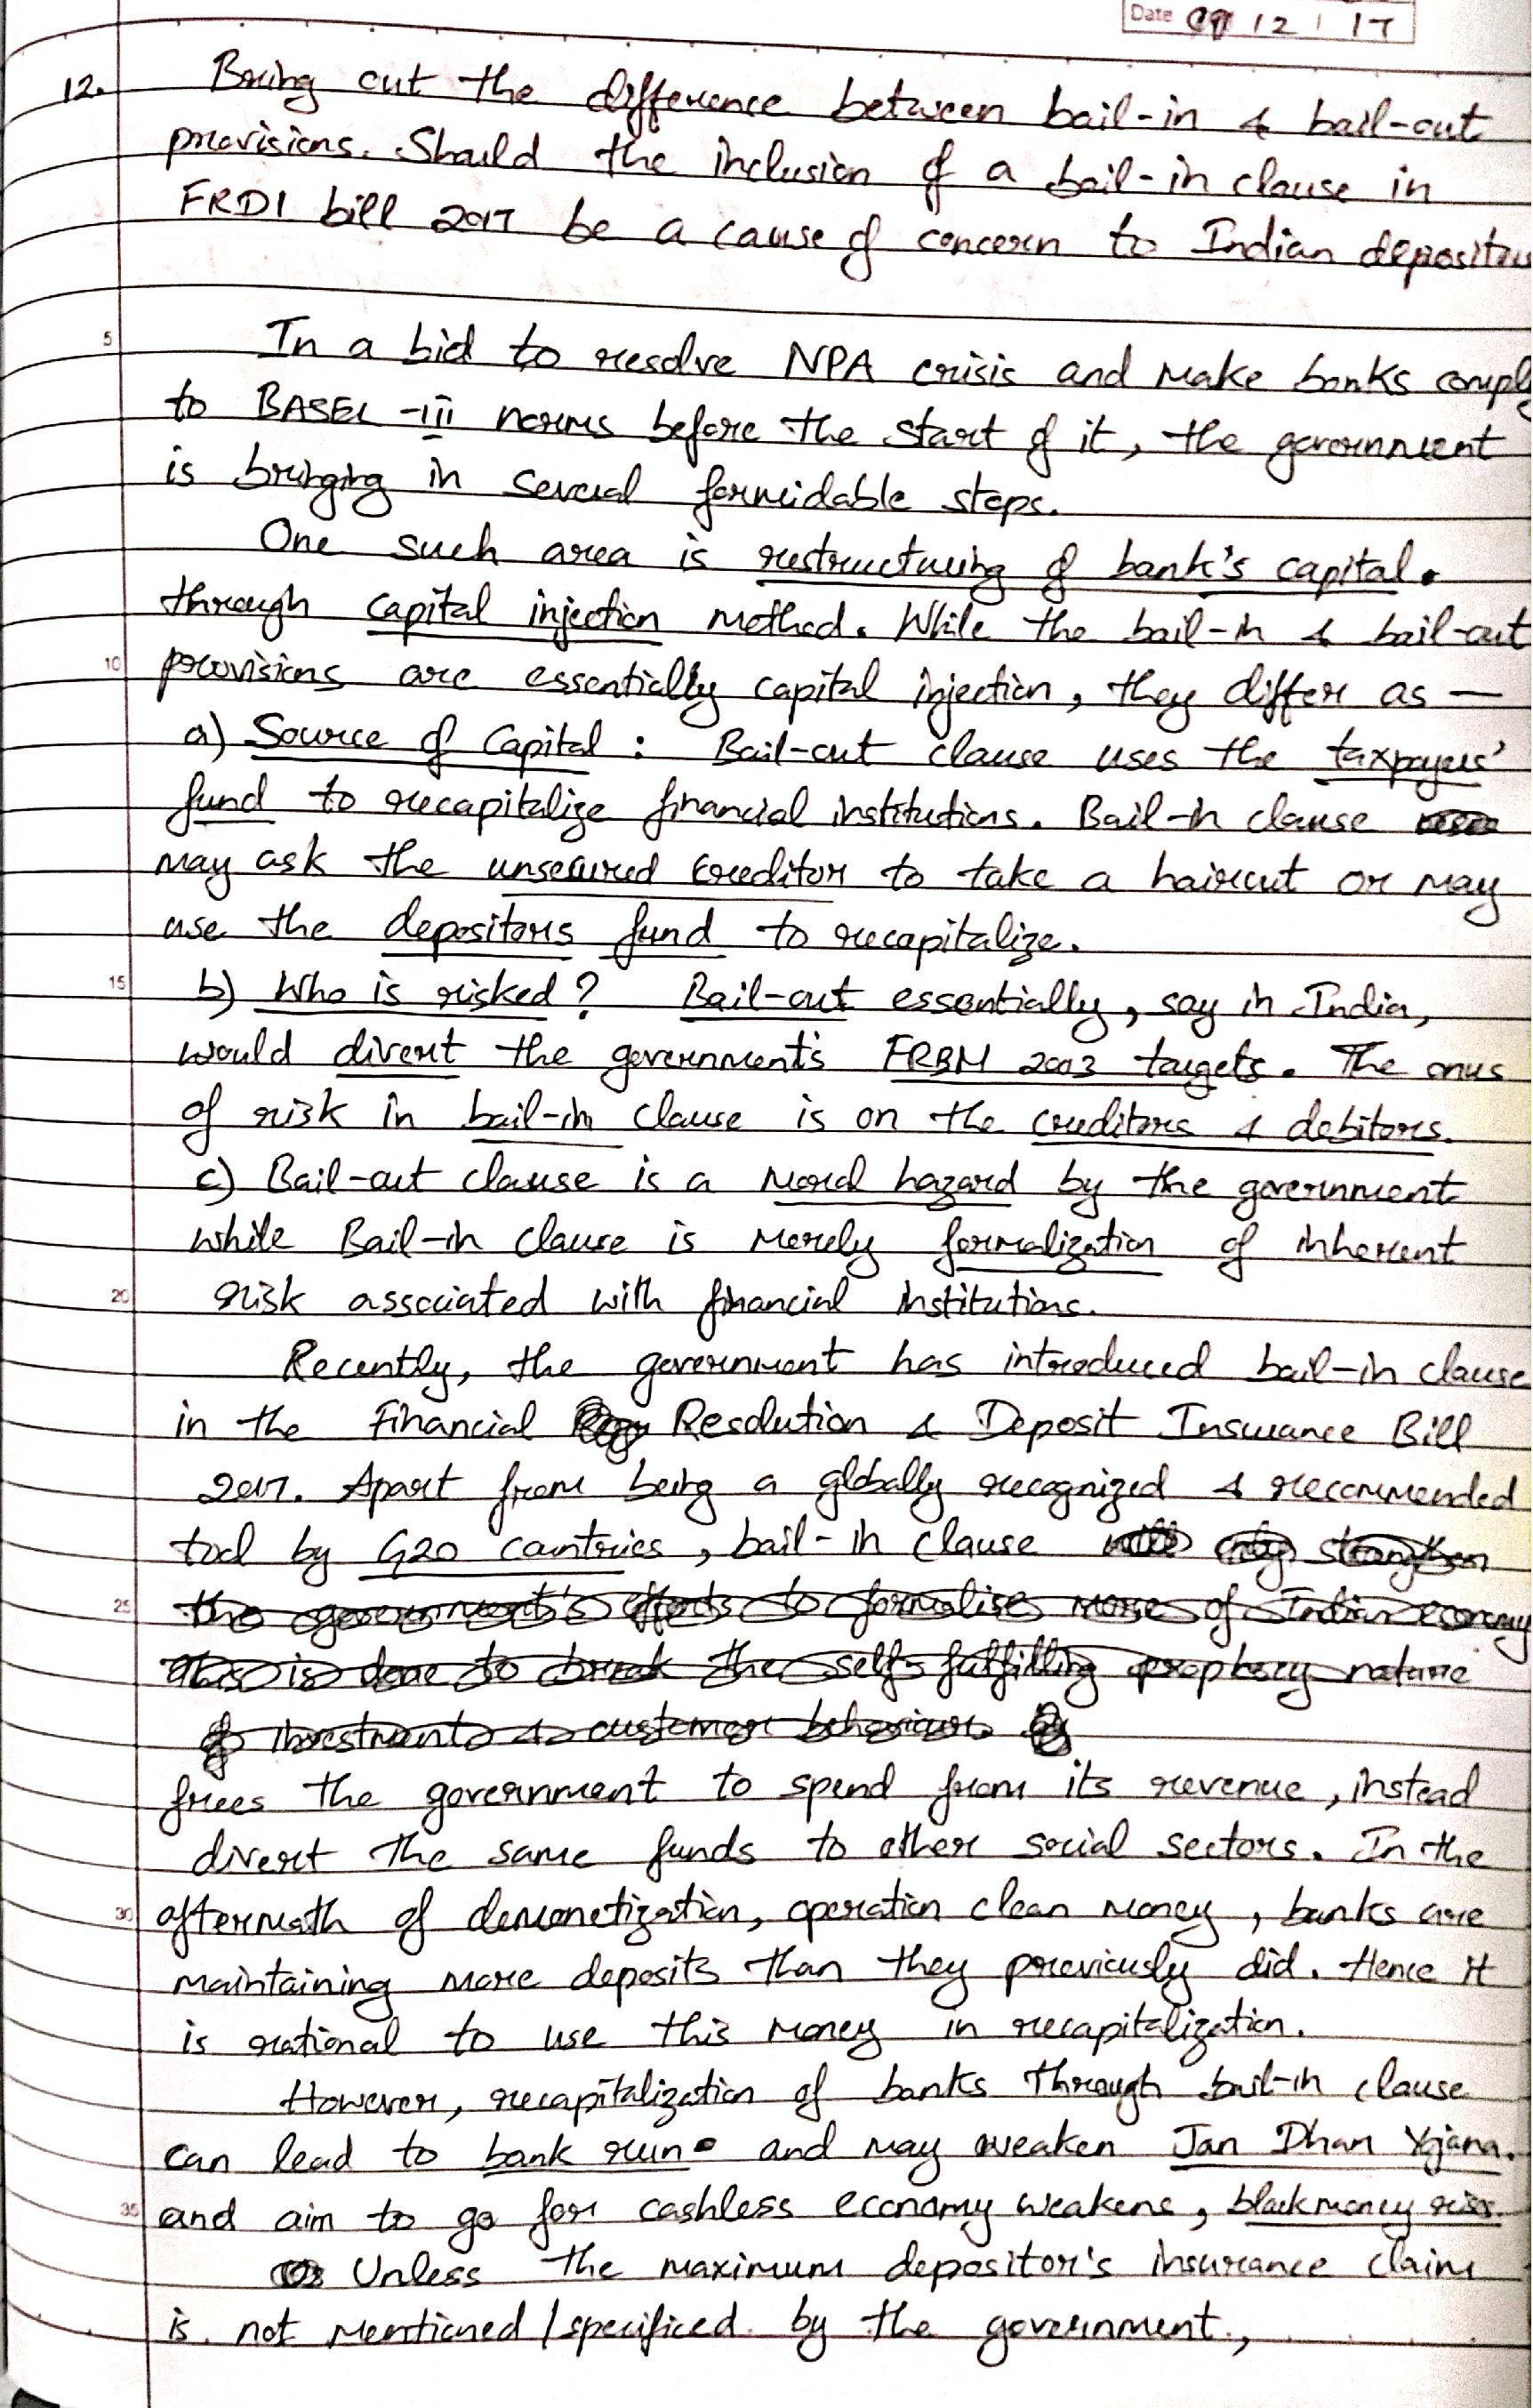 Date 09 12 17
12. Bring out the difference between bail-in & bail-out
provisions. Should the inclusion of a bail-in clause in
FRDI bill 2017 be a cause of concern to Indian depositors
5 In a bid to resolve NPA crisis and make banks comply
to BASEL-III norms before the start of it, the government
is bringing in several formidable steps.
One such area is restructuring of bank's capital.
through capital injection method. While the bail-in & bail-out
10 provisions are essentially capital injection, they differ as —
a) Source of Capital : Bail-out clause uses the taxpayers'
fund to recapitalize financial institutions. Bail-in clause
may ask the unsecured creditor to take a haircut or may
use the depositors fund to recapitalize.
15 b) Who is risked? Bail-out essentially, say in India,
would divert the government's FRBM 2003 targets. The onus
of risk in bail-in clause is on the creditors & debitors.
c) Bail-out clause is a moral hazard by the government
while Bail-in clause is merely formalization of inherent
20 risk associated with financial institutions.
Recently, the government has introduced bail-in clause
in the Financial Resolution & Deposit Insurance Bill
2017. Apart from being a globally recognized & recommended
tool by G20 countries, bail-in clause will only strengthen
25 the government's efforts to formalise more of Indian economy
this is done to break the self-fulfilling prophecy nature
of investment & customer behaviour.
frees the government to spend from its revenue, instead
divert the same funds to other social sectors. In the
30 aftermath of demonetization, operation clean money, banks are
maintaining more deposits than they previously did. Hence it
is rational to use this money in recapitalization.
However, recapitalization of banks through bail-in clause
can lead to bank run and may weaken Jan Dhan Yojana.
35 and aim to go for cashless economy weakens, blackmoney rises.
Unless the maximum depositor's insurance claim
is not mentioned/specificed by the government,